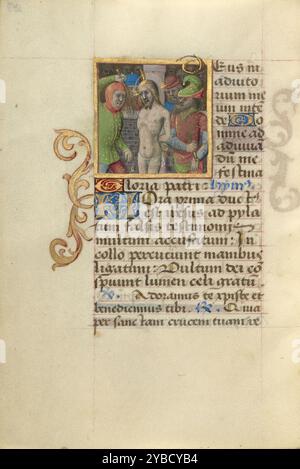 Deus in
adiuto
rium me
um inte
de Do
mine ad
adiuuā
dū me
festina
Gloria patri: hymꝰ
Hora prima duct
est iesus ad pyla
tum falsis testimoniis
multum accusatum: In
collo percutiunt manibus
ligatum: Vultum dei co
spuunt lumen celi gratū
Adoramus te xpiste et
benedicimus tibi. Quia
per sanctam crucem tuam re
alamy
Image ID: 2YBCYB4
www.alamy.com